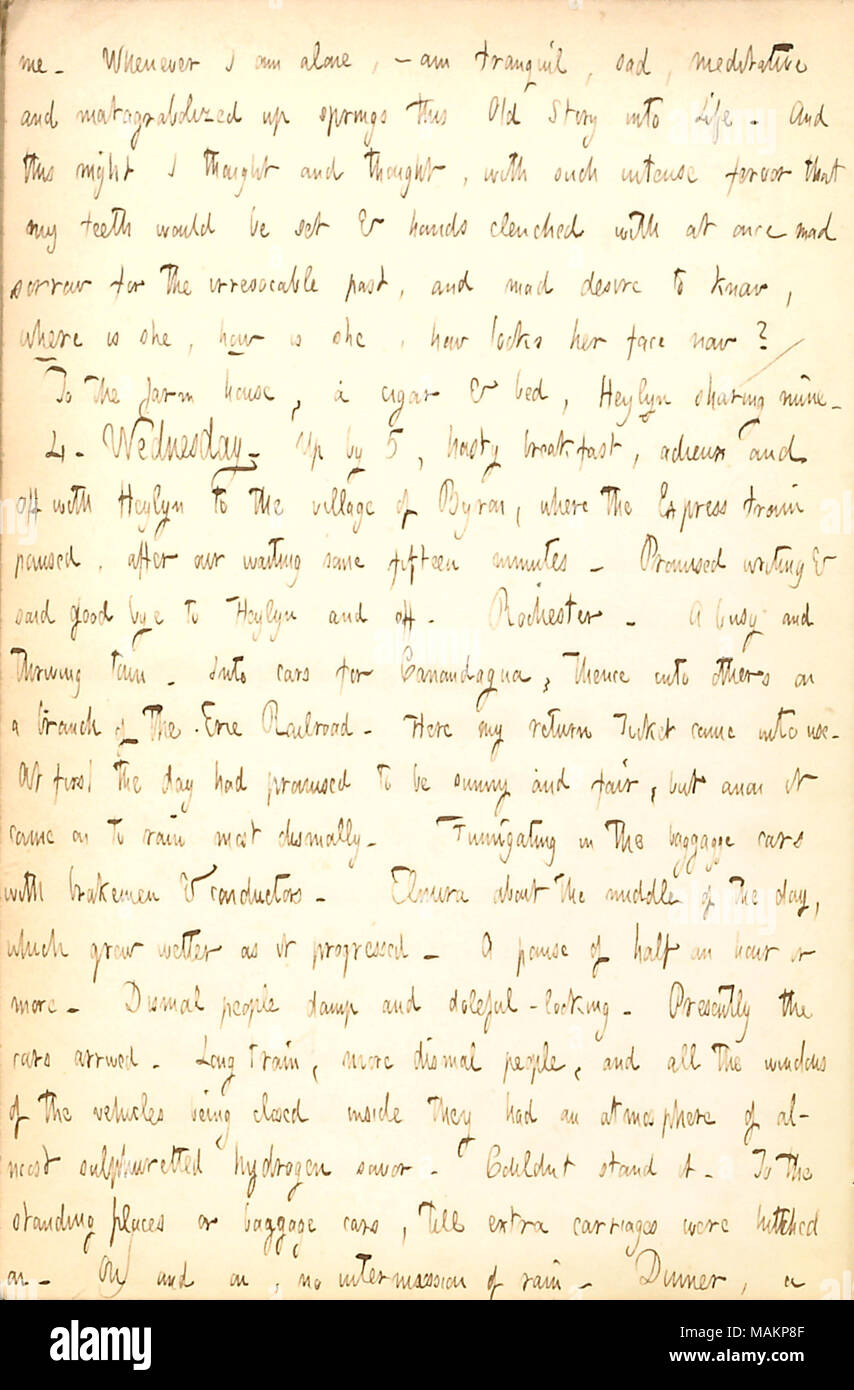 me. Whenever I am alone, – am tranquil, sad, meditative
and matagrabolized up springs this Old Story into Life. And
this night I thought and thought, with such intense fervor that
my teeth would be set & hands clenched with at once mad
sorrow for the irrevocable past, and mad desire to know,
where is she, how is she, how looks her face now?
To the farm house, a cigar & bed, Heylyn sharing mine.
4. Wednesday. Up by 5, hasty breakfast, adieux and
off with Heylyn to the village of Byron, where the Express train
paused, after our waiting some fifteen minutes. Promised writing &
said good bye to Heylyn and off. Rochester. A busy and
thriving town. Into cars for Canandagua, thence into others on
a branch of the Erie Railroad. Here my return ticket came into use.
At first the day had promised to be sunny and fair, but anon it
came on to rain most dismally. Fumigating in the baggage cars
with brakemen & conductors. Elmira about the middle of the day,
which grew wetter as it progressed. A pause of half an hour or
more. Dismal people damp and doleful-looking. Presently the
cars arrived. Long train, more dismal people, and all the windows
of the vehicles being closed inside they had an atmosphere of al-
most sulphuretted hydrogen savor. Couldn't stand it. To the
standing places or baggage cars, till extra carriages were hitched
on. On and on, no intermission of rain. Dinner, a
alamy
Image ID: MAKP8F
www.alamy.com